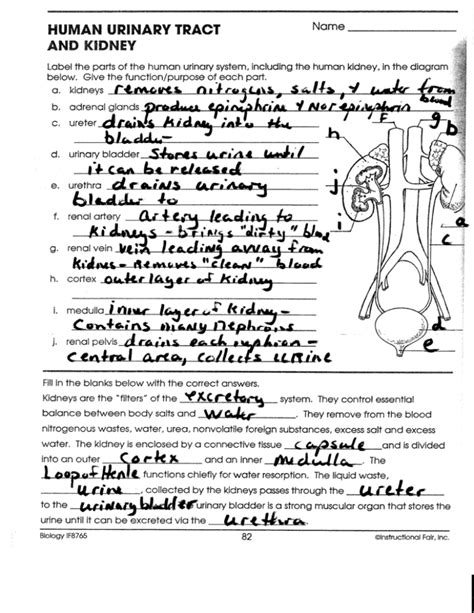 HUMAN URINARY TRACT Name
AND KIDNEY
Label the parts of the human urinary system, including the human kidney, in the diagram
below. Give the function/purpose of each part.
a. kidneys removes nitrogens, salts, & water from
blood
b. adrenal glands produce epinephrine & Norepinephrin
c. ureter drains Kidney into the
bladder-
d. urinary bladder Stores urine until
it can be released
e. urethra drains urinary
bladder to
f. renal artery artery leading to
Kidneys - brings "dirty" blood
g. renal vein vein leading away from
Kidney - Removes "Clean" blood
h. cortex outer layer of Kidney
i. medulla inner layer of Kidney -
Contains many Nephrons
j. renal pelvis drains each nephron -
central area, collects urine
F
g b
h
j
i
a
c
d
e
Fill in the blanks below with the correct answers.
Kidneys are the "filters" of the excretory system. They control essential
balance between body salts and water. They remove from the blood
nitrogenous wastes, water, urea, nonvolatile foreign substances, excess salt and excess
water. The kidney is enclosed by a connective tissue capsule and is divided
into an outer Cortex and an inner Medulla. The
Loop of Henle functions chiefly for water resorption. The liquid waste,
urine, collected by the kidneys passes through the ureter
to the urinary bladder urinary bladder is a strong muscular organ that stores the
urine until it can be excreted via the urethra.
Biology IF8765 82 ©Instructional Fair, Inc.